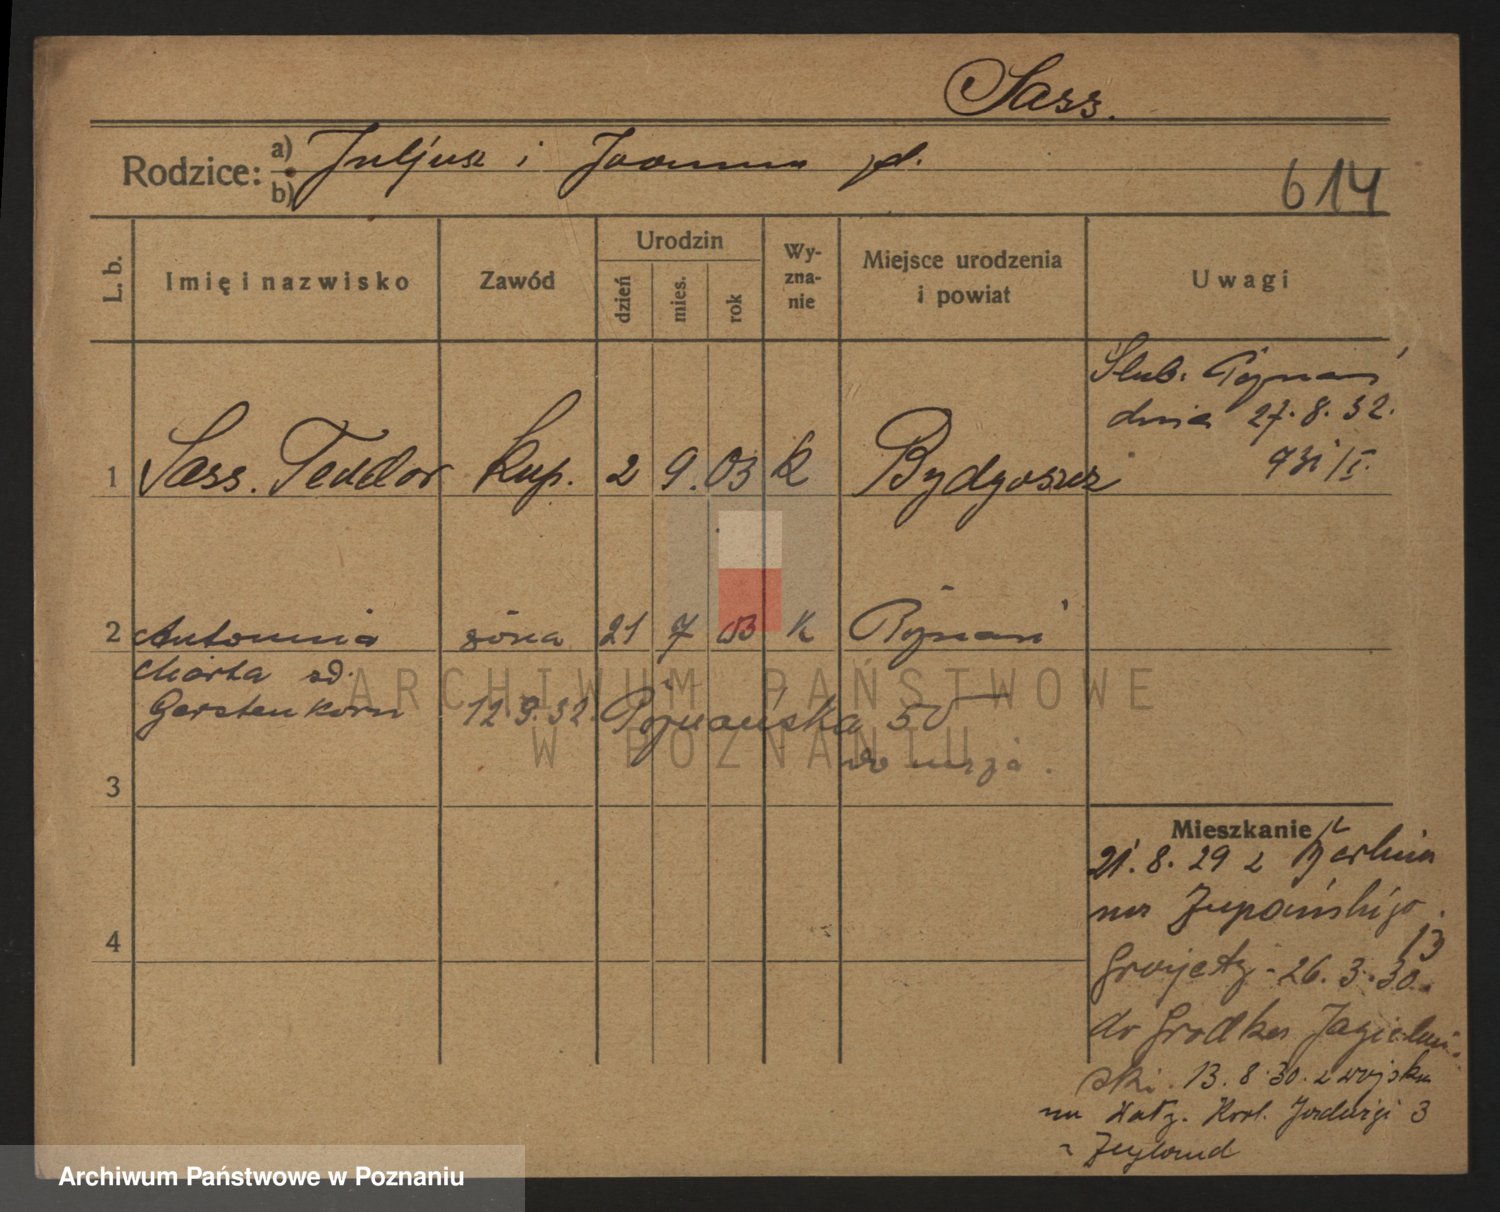 Sass.
Rodzice: a) Juljusz i Joanna
b)
614
L. b.
Imię i nazwisko
Zawód
Urodzin
dzień
mies.
rok
Wy-
zna-
nie
Miejsce urodzenia
i powiat
Uwagi
Ślub: Poznań
dnia 27.8.32.
931/I.
1 Sass. Teodor kup. 2 9. 03 k Bydgoszcz
2 Antonina żona 21 7 03 k Poznań
Marta
Gerstenkorn 12.9.32. Poznańska 50
do męża.
3
Mieszkanie
21.8.29 z Berlina
na Żupańskiego
13
26.3.30.
do Jagieloń-
ski. 13.8.30. z wojska
na Król. Jadwigi 3
4
ARCHIWUM PAŃSTWOWE
W POZNANIU
Archiwum Państwowe w Poznaniu